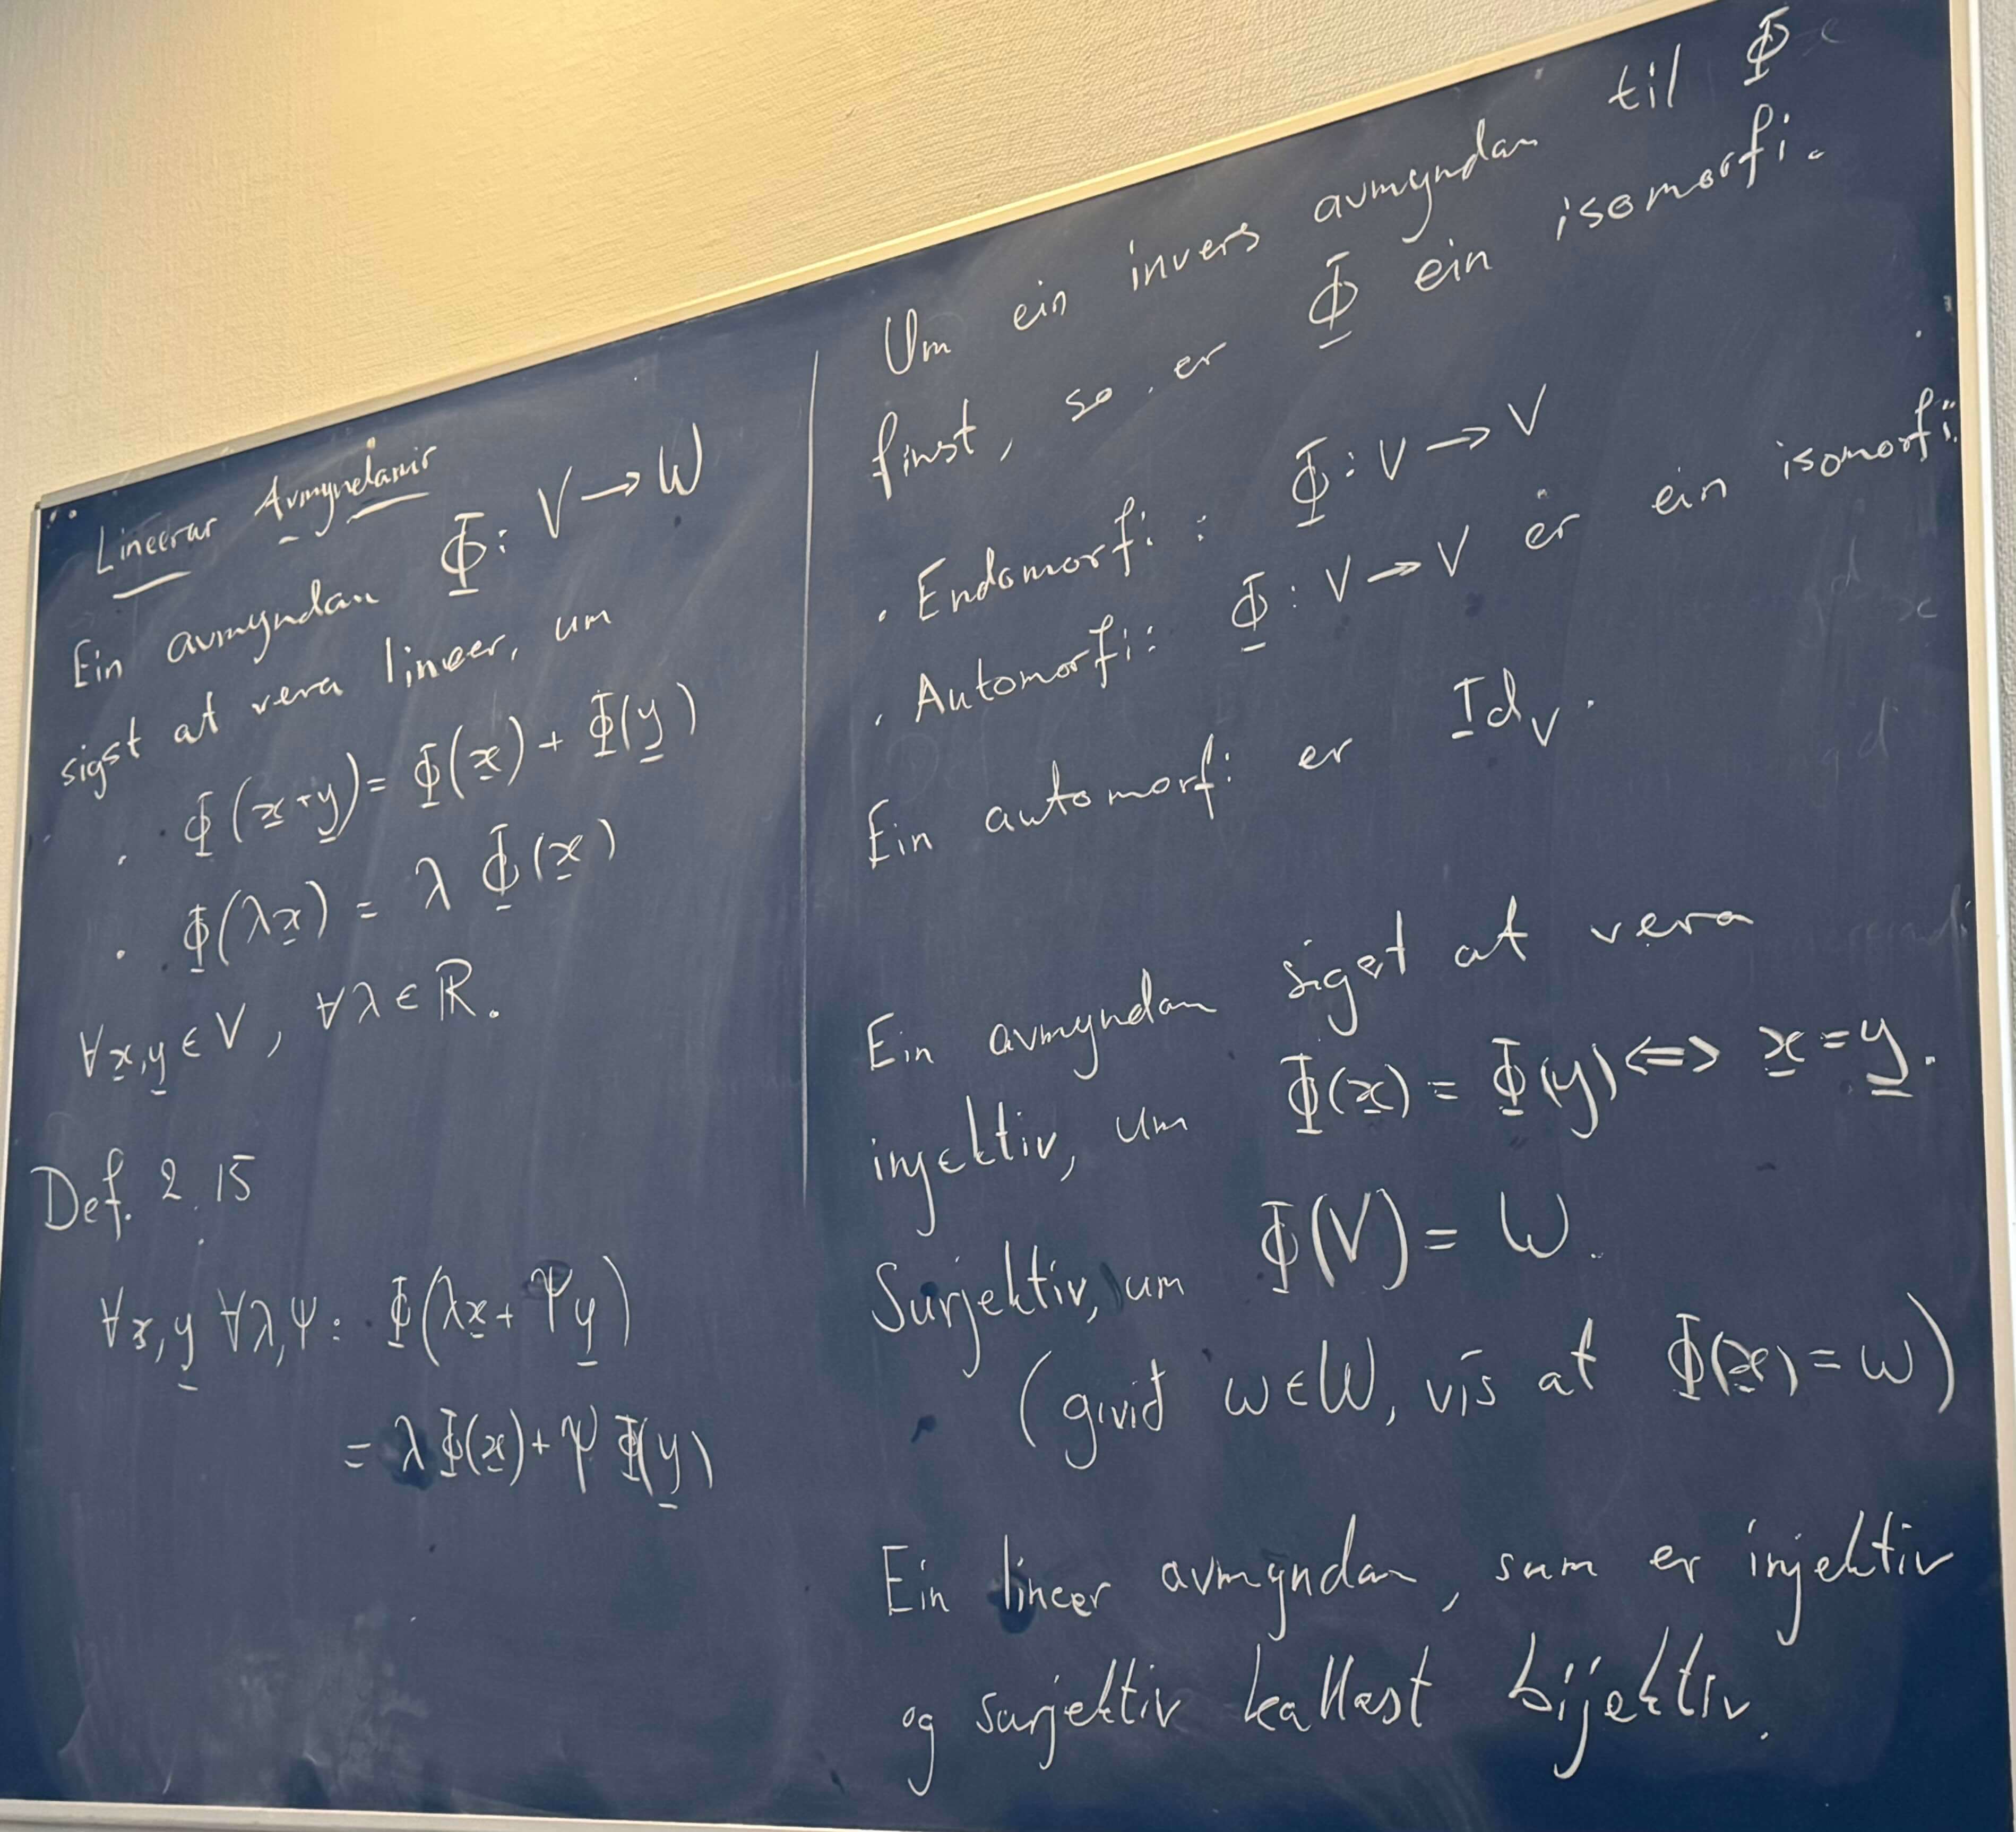 Lineerar Avmyndanir
Ein avmyndan Φ: V → W
sigst at vera lineer, um
· Φ(x+y) = Φ(x) + Φ(y)
· Φ(λx) = λ Φ(x)
∀x,y ∈ V, ∀λ ∈ ℝ.
Def. 2.15
∀x,y ∀λ,Ψ: Φ(λx + Ψy)
= λΦ(x) + ΨΦ(y)
Um ein invers avmyndan til Φ
finst, so er Φ ein isomorfi.
· Endomorfi: Φ: V → V
· Automorfi: Φ: V → V er ein isomorfi.
Ein automorfi er Id_V.
Ein avmyndan siget at vera
injektiv, um Φ(x) = Φ(y) ⟺ x = y.
Surjektiv, um Φ(V) = W.
(givið w ∈ W, vís at Φ(x) = w)
Ein lineer avmyndan, sum er injektiv
og surjektiv kallast bijektiv.